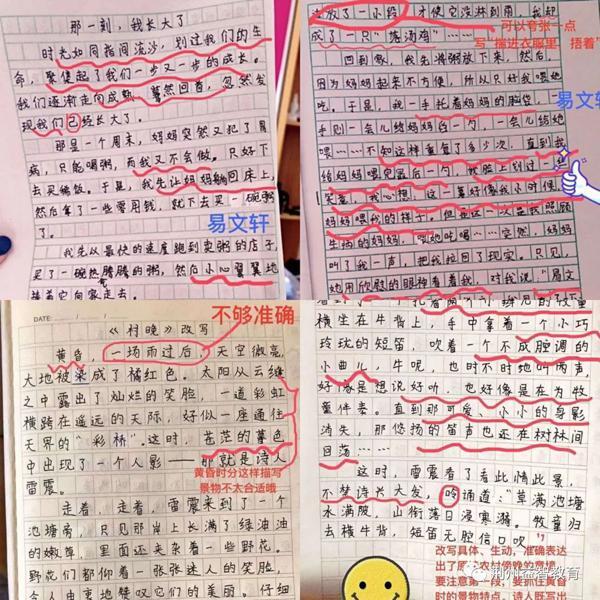 那一刻，我长大了
时光如同指间流沙，划过我们的生
命，聚集起了我们一步又一步的成长。
我们逐渐走向成熟，蓦然回首，忽然发
现我们已经长大了。
那是一个周末，妈妈突然又犯了胃
病，只能喝粥，而我又不会做。只好下
去买稀饭。于是，我先让妈妈躺回床上，
然后拿了一些零用钱，就下去买一碗粥
了。
易文轩
我先以最快的速度跑到卖粥的店子，
买了一碗热腾腾的粥，然后小心翼翼地
放了一小段，才使它没淋到雨，我却
成了一只“落汤鸡”……
可以夸张一点
写“揣进衣服里，捂着”
回到家，我先将粥放下来，然后，
因为妈妈起来不方便，所以只好我喂她
吃。于是，我一手托着妈妈的脸袋，
易文轩
手则一会儿给妈妈舀一勺，一会儿给她
喂……不知这样重复了多少次，直到我
给妈妈喂完最后一勺，我脸上划过一丝
笑意，我心想，这一幕好像我小时候，
妈妈喂我的样子。但是这一次是我照顾
生病的妈妈，喂她吃喝……突然，妈妈
叫了我一声，把我拉回了现实。只见，
她用欣慰的眼神看着我，对我说，“易文
DATE:
不够准确
《村晚》改写
黄昏，一场雨过后，天空微亮，
大地被染成了橘红色。太阳从云缝
之中露出了灿烂的笑脸，一道彩虹
横跨在遥远的天际，好似一座通往
天界的“彩桥”。这时，苍茫的暮色
中出现了一个人影——那就是诗人
雷震。
黄昏时分这样描写
景物不太合适哦
走着，走着，雷震来到了一个
池塘旁，只见那岸上长满了绿油油
的嫩草，里面还夹杂着一些野花。
野花们都仰着一张张迷人的笑脸
横坐在牛背上，手中拿着一个小巧
玲珑的短笛，吹着一个不成腔调的
小曲儿，牛呢，也时不时地叫两声，
好像是想说好听，也好像是在为牧
童伴奏。直到那可爱、小小的身影
消失，那悠扬的笛声也还在树林间
回荡……
这时，雷震看了看此情此景，
不禁诗兴大发，吟诵道：“草满池塘
水满陂，山衔落日浸寒漪。牧童归
去横牛背，短笛无腔信口吹。”
改写具体、生动，准确表达
出了原诗农村傍晚的意境，
要注意第一段，要抓住黄昏
时的景物特点，诗人既写出
荆州益智教育